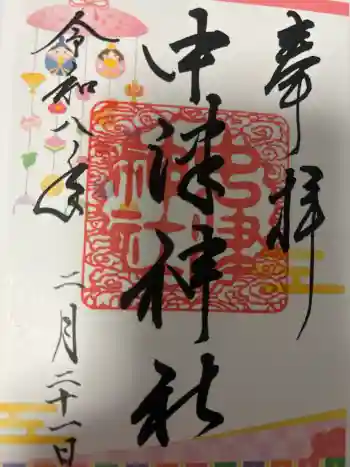 奉拝
中津神社
中津神社
令和八年
二月二十一日